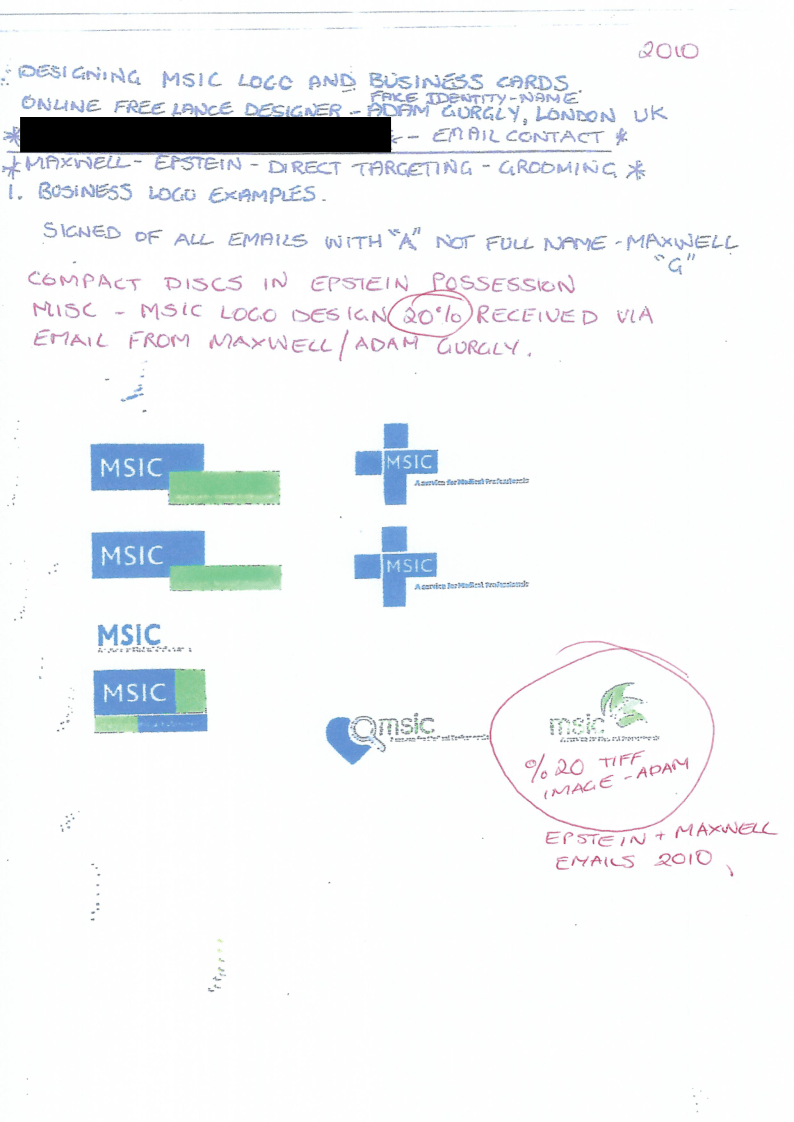 2010
∴ DESIGNING MSIC LOGO AND BUSINESS CARDS.
FAKE IDENTITY-NAME
ONLINE FREELANCE DESIGNER - ADAM GURGLY, LONDON UK
* - EMAIL CONTACT *
* MAXWELL - EPSTEIN - DIRECT TARGETING - GROOMING *
1. BUSINESS LOGO EXAMPLES.
SIGNED OF ALL EMAILS WITH "A" NOT FULL NAME - MAXWELL
"G"
COMPACT DISCS IN EPSTEIN POSSESSION
MISC - MSIC LOGO DESIGN 20% RECEIVED VIA
EMAIL FROM MAXWELL / ADAM GURGLY.
MSIC
MSIC
A service for Medical Professionals
MSIC
MSIC
A service for Medical Professionals
MSIC
MSIC
msic
msic
% 20 TIFF
IMAGE - ADAM
EPSTEIN + MAXWELL
EMAILS 2010